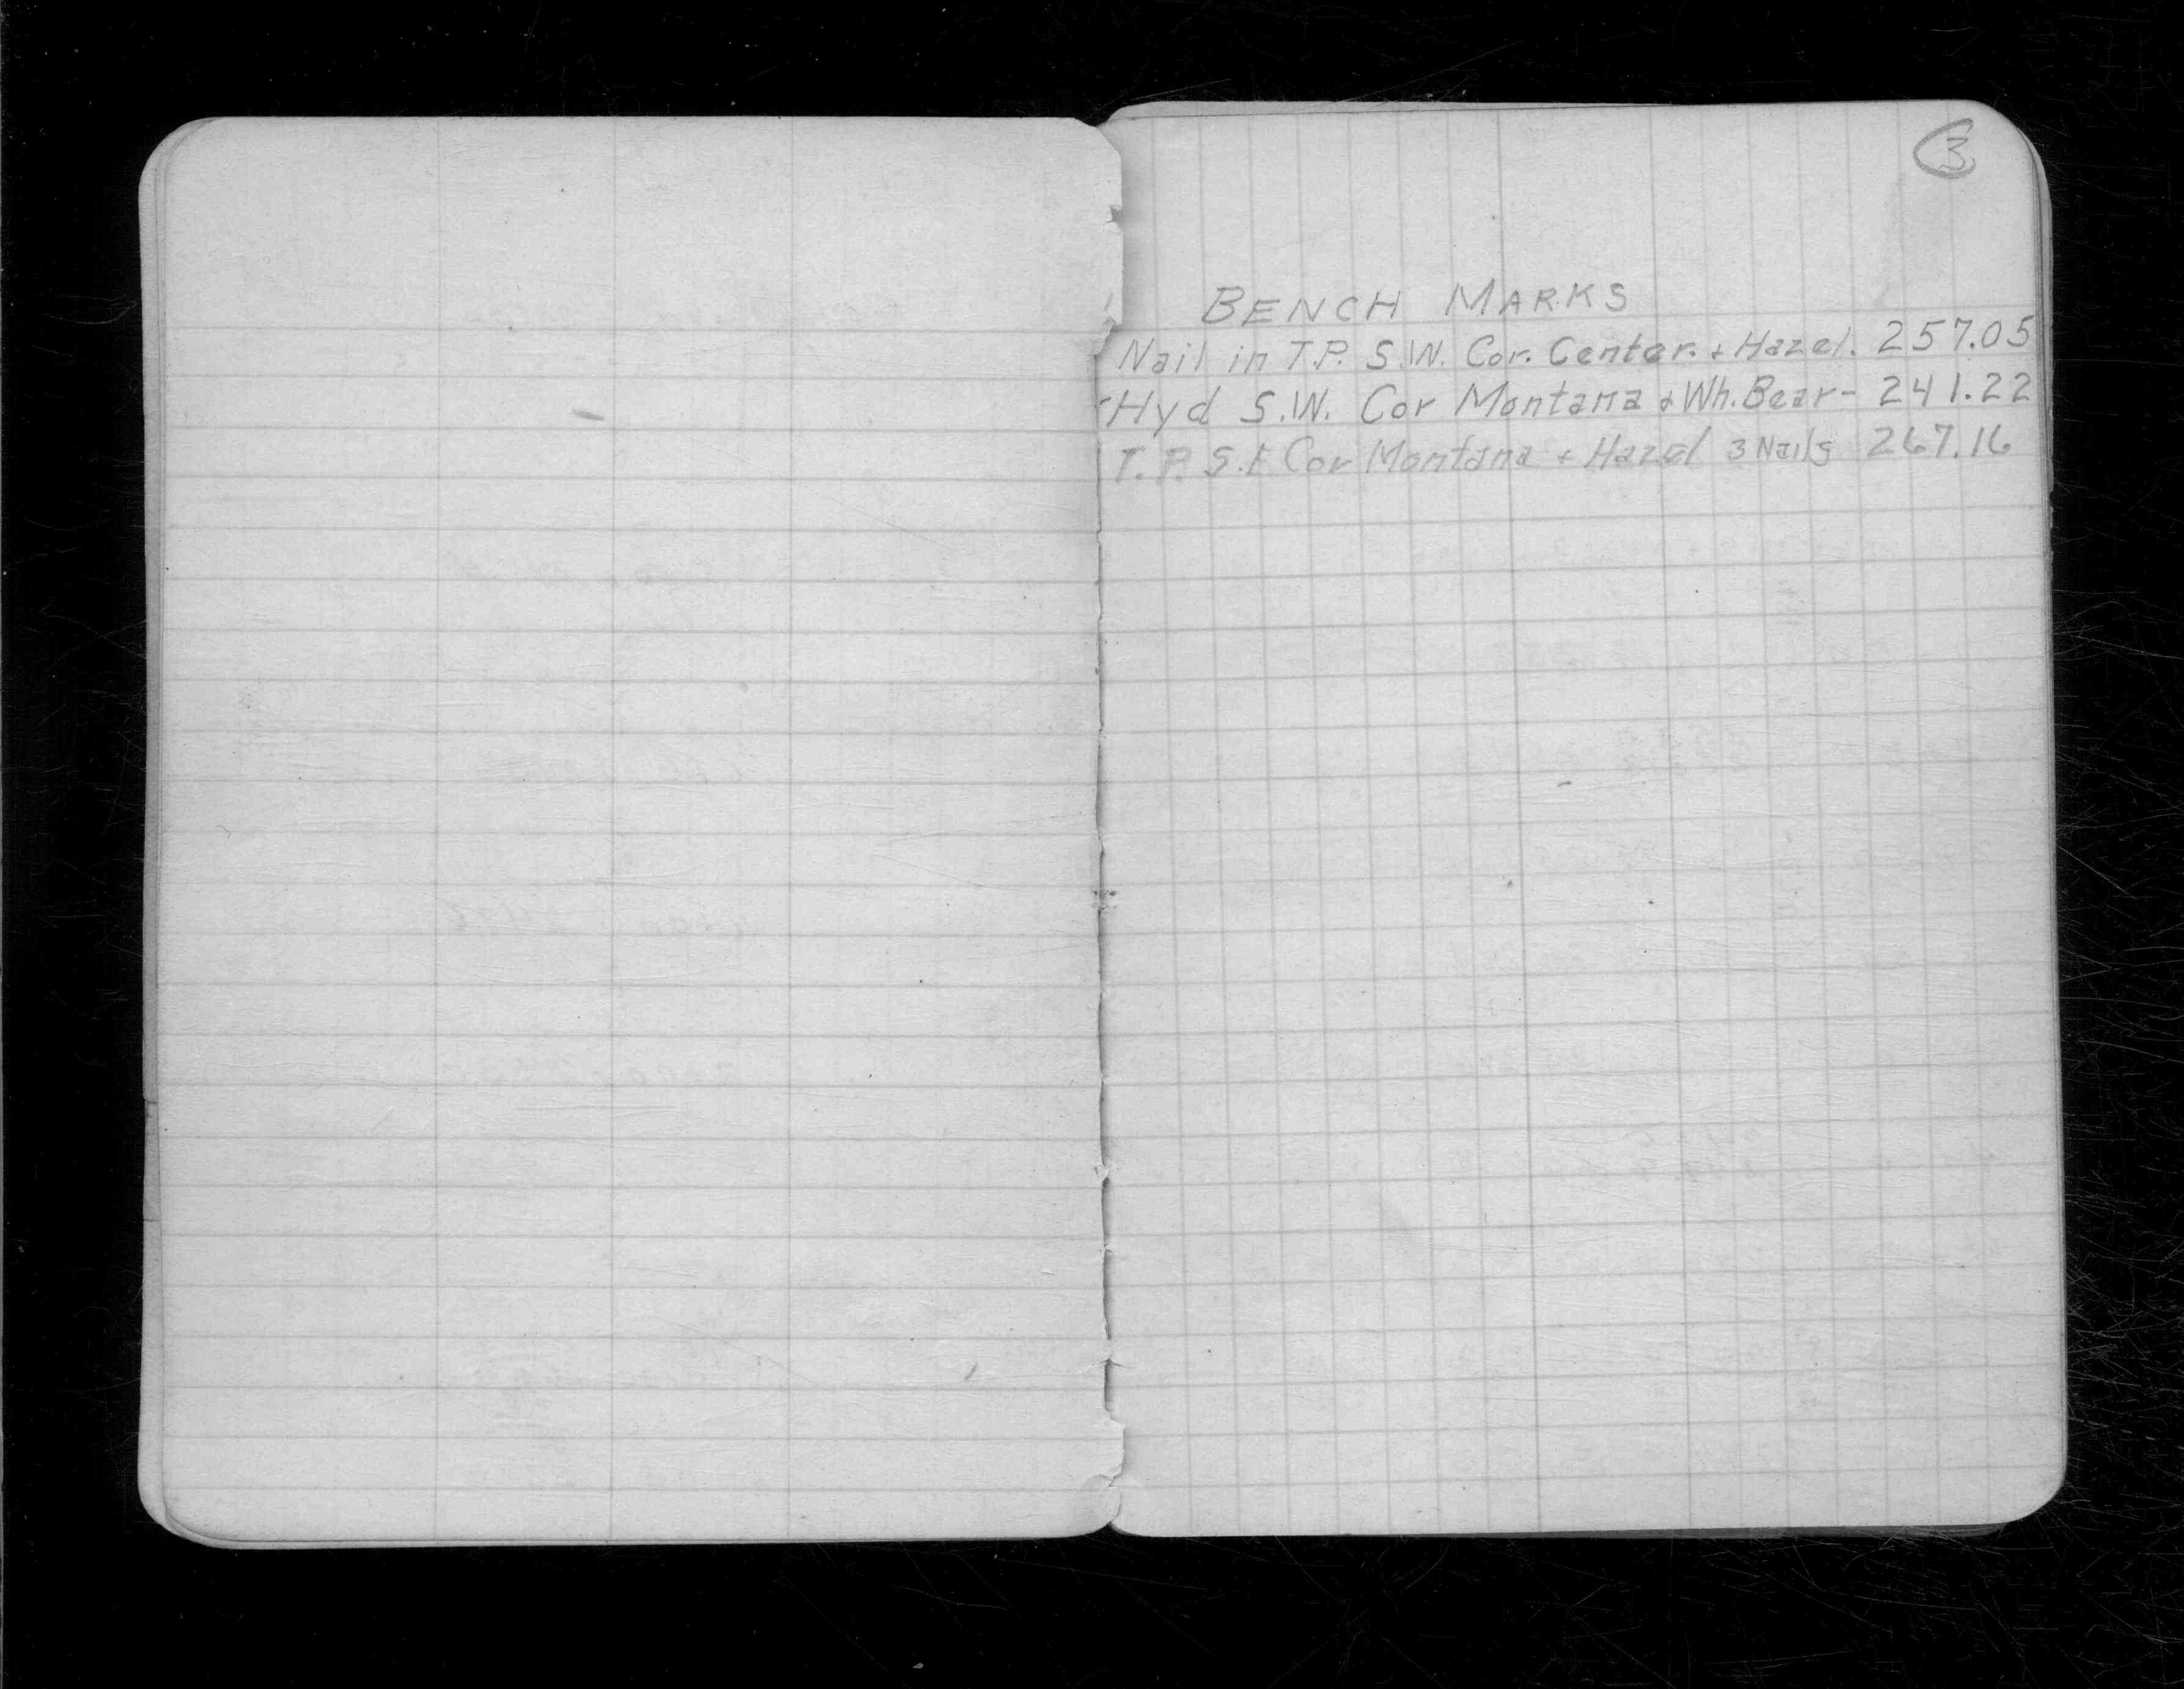 3
BENCH MARKS
Nail in T.P. S.W. Cor. Center. + Hazel. 257.05
Hyd S.W. Cor Montana & Wh. Bear - 241.22
T.P. S.E Cor Montana + Hazel 3 Nails 267.16